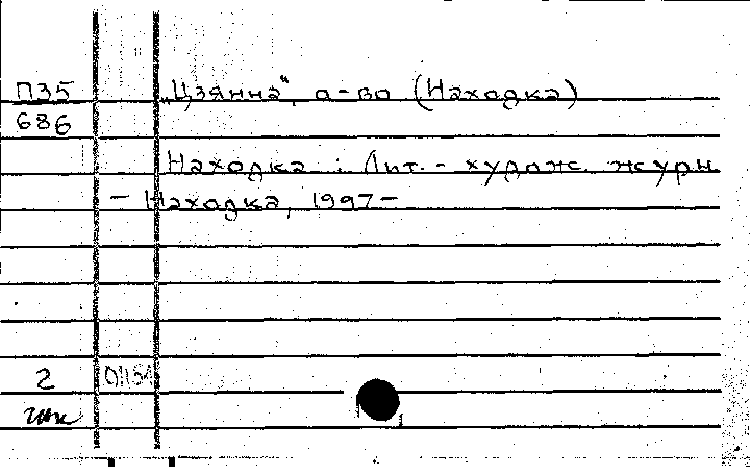 П35 „Цзянна“, а-во (Находка)
686
Находка : Лит.- худож. журн.
- Находка, 1997-
2